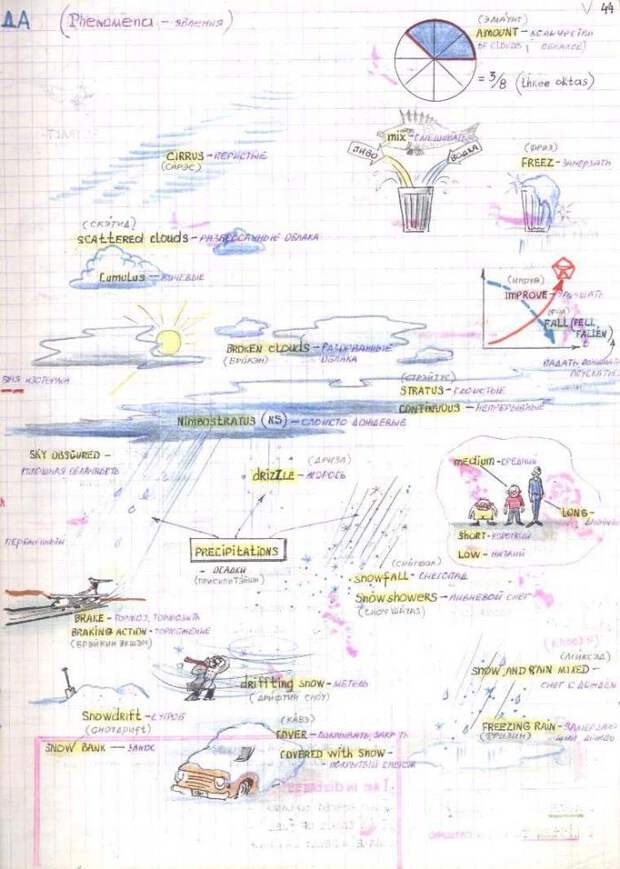 ДА (Phenomena – явления)
44
(ЭМАУНТ)
AMOUNT – количество
OF CLOUDS ( ОБЛАКОВ)
= 3/8 (three oktas)
mix – СМЕШИВАТЬ
ПИВО
ВОДКА
(ФРИЗ)
FREEZ – замерзать
CIRRUS – ПЕРИСТЫЕ
(СИРЭС)
(СКЭТИД)
SCATTERED clouds – РАЗБРОСАННЫЕ ОБЛАКА
Cumulus – КУЧЕВЫЕ
(ИМПРУВ)
IMPROVE – УЛУЧШАТЬ
FALL (FELL,
FALLEN)
ПАДАТЬ
BROKEN clouds – РАЗОРВАННЫЕ
(БРОКЭН) ОБЛАКА
(СТРЭЙТУС)
STRATUS – СЛОИСТЫЕ
CONTINUOUS – НЕПРЕРЫВНЫЕ
Nimbostratus (NS) – СЛОИСТО ДОЖДЕВЫЕ
SKY OBSCURED –
(ДРИЗЛ)
drizzle – МОРОСЬ
medium – СРЕДНИЙ
LONG –
SHORT – КОРОТКИЙ
LOW – НИЗКИЙ
PRECIPITATIONS
– ОСАДКИ
(ПРИСИПИТЭЙШН)
(СНОУФОЛ)
snowfall – СНЕГОПАД
Snow showers – ЛИВНЕВОЙ СНЕГ
(СНОУ ШАУАЗ)
BRAKE – ТОРМОЗ, ТОРМОЗИТЬ
BRAKING ACTION – ТОРМОЖЕНИЕ
(БРЭЙКИН ЭКШЭН)
(МИКСЭД)
SNOW AND RAIN MIXED –
СНЕГ С ДОЖДЕМ
driffting snow – МЕТЕЛЬ
(ДРИФТИН СНОУ)
Snowdrift – СУГРОБ
(СНОУДРИФТ)
SNOW BANK — ЗАНОС
(КАВЭ)
COVER – ПОКРЫВАТЬ, ЗАКРЫТЬ
COVERED with SNOW –
– ПОКРЫТЫЙ СНЕГОМ
FREEZING RAIN – ЗАМЕРЗАЮ-
(ФРИЗИН) ЩИЙ ДОЖДЬ